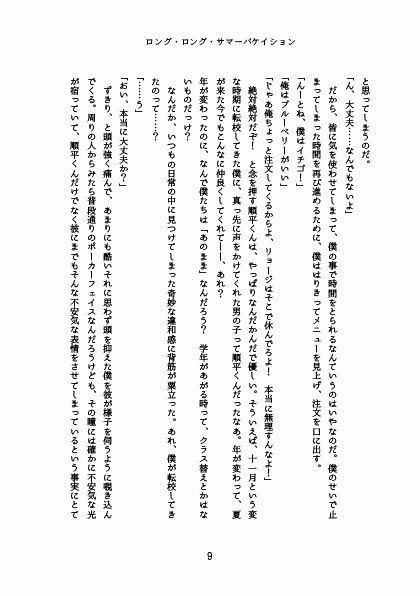 ロング・ロング・サマーバケイション
と思ってしまうのだ。
「ん、大丈夫……なんでもないよ」
だから、皆に気を使わせてしまって、僕の事で時間をとられるなんていうのはいやなのだ。僕のせいで止
まってしまった時間を再び進めるために、僕ははりきってメニューを見上げ、注文を口に出す。
「んーとね、僕はイチゴ！」
「俺はブルーベリーがいい」
「じゃあ俺ちょっと注文してくるからよ、リョージはそこで休んでろよ！　本当に無理すんなよ！」
絶対絶対だぞ！　と念を押す順平くんは、やっぱりなんだかんだで優しい。そういえば、十一月という変
な時期に転校してきた僕に、真っ先に声をかけてくれた男の子って順平くんだったなあ。年が変わって、夏
が来た今でもこんなに仲良くしてくれて――、あれ？
年が変わったのに、なんで僕たちは「あのまま」なんだろう？　学年があがる時って、クラス替えとかはな
いものだっけ？
なんだか、いつもの日常の中に見つけてしまった奇妙な違和感に背筋が粟立った。あれ、僕が転校してき
たのって……？
「……う」
ずきり、と頭が強く痛んで、あまりにも酷いそれに思わず頭を抑えた僕を彼が様子を伺うように覗き込ん
でくる。周りの人からみたら普段通りのポーカーフェイスなんだろうけども、その瞳には確かに不安気な光
が宿っていて、順平くんだけでなく彼にまでもそんな不安気な表情をさせてしまっているという事実にとて
「おい、本当に大丈夫か？」
9